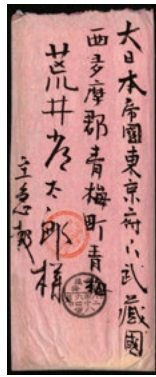 大日本帝國東京府下武藏國
西多摩郡青梅町青梅
荒井常太郎様
至急報